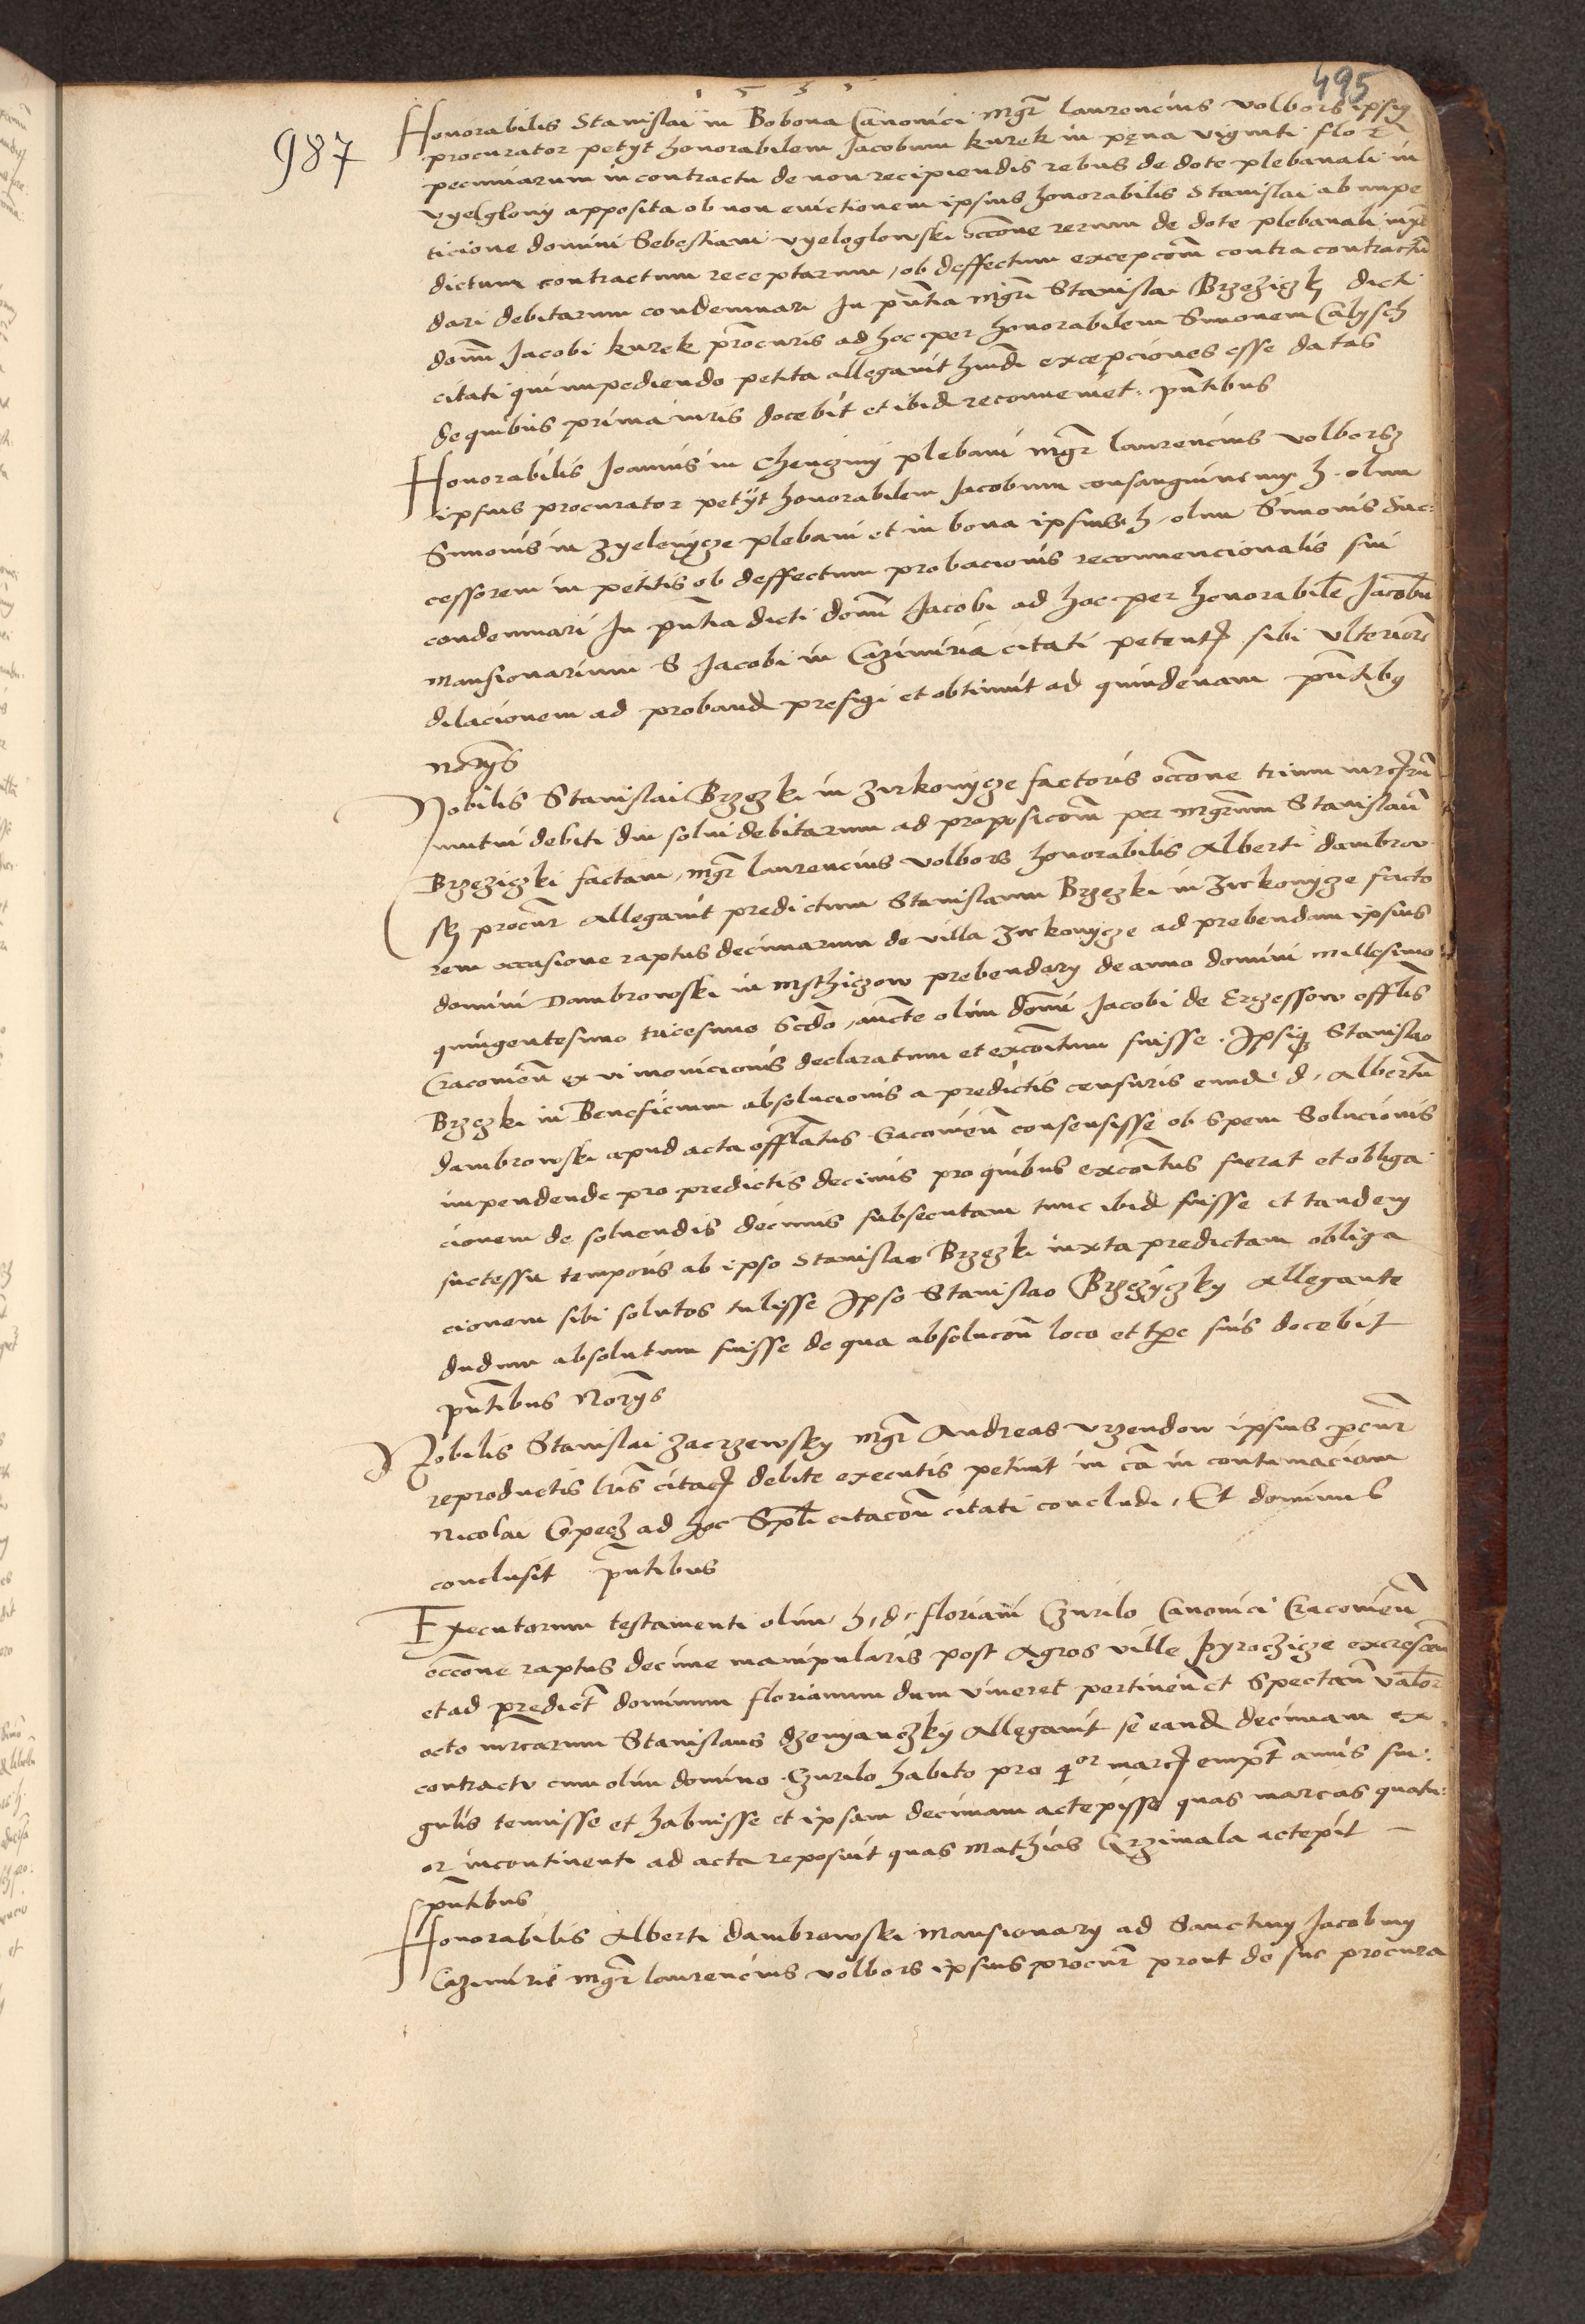 1 5 3 3
495
987
Honorabilis Stanislai in Bobona Canonici Mgr̃ laurencius volbors ipsiꝰ
procurator petyt honorabilem Jacobum kurek in pęna viginti flo
pecuniarum in contractu de non recipiendis rebus de dote plebanali in
vyelglowy apposita ob non euictionem ipsius honorabilis Stanislai ab impe
ticione domini Sebestiani vyeloglowski occõne rerum de dote plebanali iuxᵃ
dictum contractum receptarum, ob deffectum excepcõm contra contractũ
dari debitarum condemnari In pñtia mgr̃i Stanislai Brzeziczkỹ dicti
domĩ Jacobi kurek procuris ad hoc per honorabilem Simonem Calysch
citati qui impediendo petita allegauit hmõi excepciones esse datas
de quibus prima iuris docebit et ibid reconueniet. pñtibus
Honorabilis Joannis in Chenczini plebani mgr̃ laurencius volborsz
ipsius procurator petyt honorabilem Jacobum consanguineuꝫ h. olim
Simonis in Zyelenycze plebani et in bona ipsius h. olim Simonis suc:
cessorem in petitis ob deffectum probacionis reconuencionalis sui
condemnari In pñtia dicti domĩ Jacobi ad hoc per honorabilẽ Jacobũ
mansionarium S Jacobi in Cazimiria citati petentꝭ sibi vlteriorẽ
dilacionem ad proband prefigi et obtinuit ad quindenam pñtibꝰ
nor̃ys
Nobilis Stanislai Brzezki in Zirkowycze factoris occõne trium mrcarũ
mutui debiti diu solui debitarum ad proposicõm per mgr̃um Stanislaũ
Brzeziczki factam, mgr̃ laurencius volbors honorabilis Alberti dambrow
skỹ procur̃ allegauit predictum Stanislaum Brzezki in Zirkowycze facto
rem occasione raptus decimarum de villa Zirkowycze ad prebendam ipsius
domini Dambrowski in Msthiczow prebendarÿ de anno domini millesimo
quingentesimo tricesimo Scdo, auc̃te olim domĩ Jacobi de Erzessow offlis
Cracouieñ ex vi monicionis declaratum et excõitum fuisse. Ipsiqꝫ Stanislao
Brzezki in Beneficium absolucionis a predictis censuris eundẽ d. Albertũ
dambrowski apud acta offlatus Cracouieñ consensisse ob spem Solucionis
impendende pro predictis decimis pro quibus excõitus fuerat et obliga
cionem de soluendis decimis subsecutam tunc ibid fuisse et tandeꝫ
successu temporis ab ipso Stanislao Brzezki iuxta predictam obliga
cionem sibi solutos tulisse Ipso Stanislao Brzeziczky Allegante
dudum absolutum fuisse de qua absolucõn loco et tꝑe suis docebit
pñtibus Nor̃ys
Nobilis Stanislai Zacrzewsky mgr̃ Andreas vrzendow ipsius procur̃
reproductis lr̃is citacꝭ debite executis petiuit in cã in contumaciam
Nicolai Gpecz ad hoc Spli citacõn citati concludi. Et dominus
conclusit pñtibus
Executorum testamenti olim h. d. floriani Czurilo Canonici Cracouieñ
occõne raptus decime manipularis post Agros ville pyroczicze excresceñ
et ad predict̃ dominum florianum dum viueret pertineñ et Spectañ valor̃
octo mrcarum Stanislaus dzenyanczky Allegauit se eand decimam ex
contractu cum olim domino Czurilo habito pro qᵒʳ marcꝭ empt̃ annis sin:
gulis tenuisse et habuisse et ipsam decimam accepisse quas marcas quatu:
or incontinenti ad acta reposuit quas Mathias Grzimala accepit
pñtibus
Honorabilis Alberti dambrowski Mansionarÿ ad Sanctuꝫ Jacobuꝫ
Cazimirie mgr̃ laurencius volbors ipsius procur̃ prout de sue procura